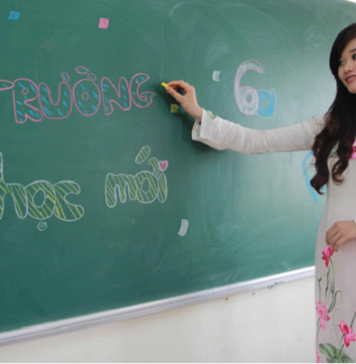 TRƯỜNG 6
học mới